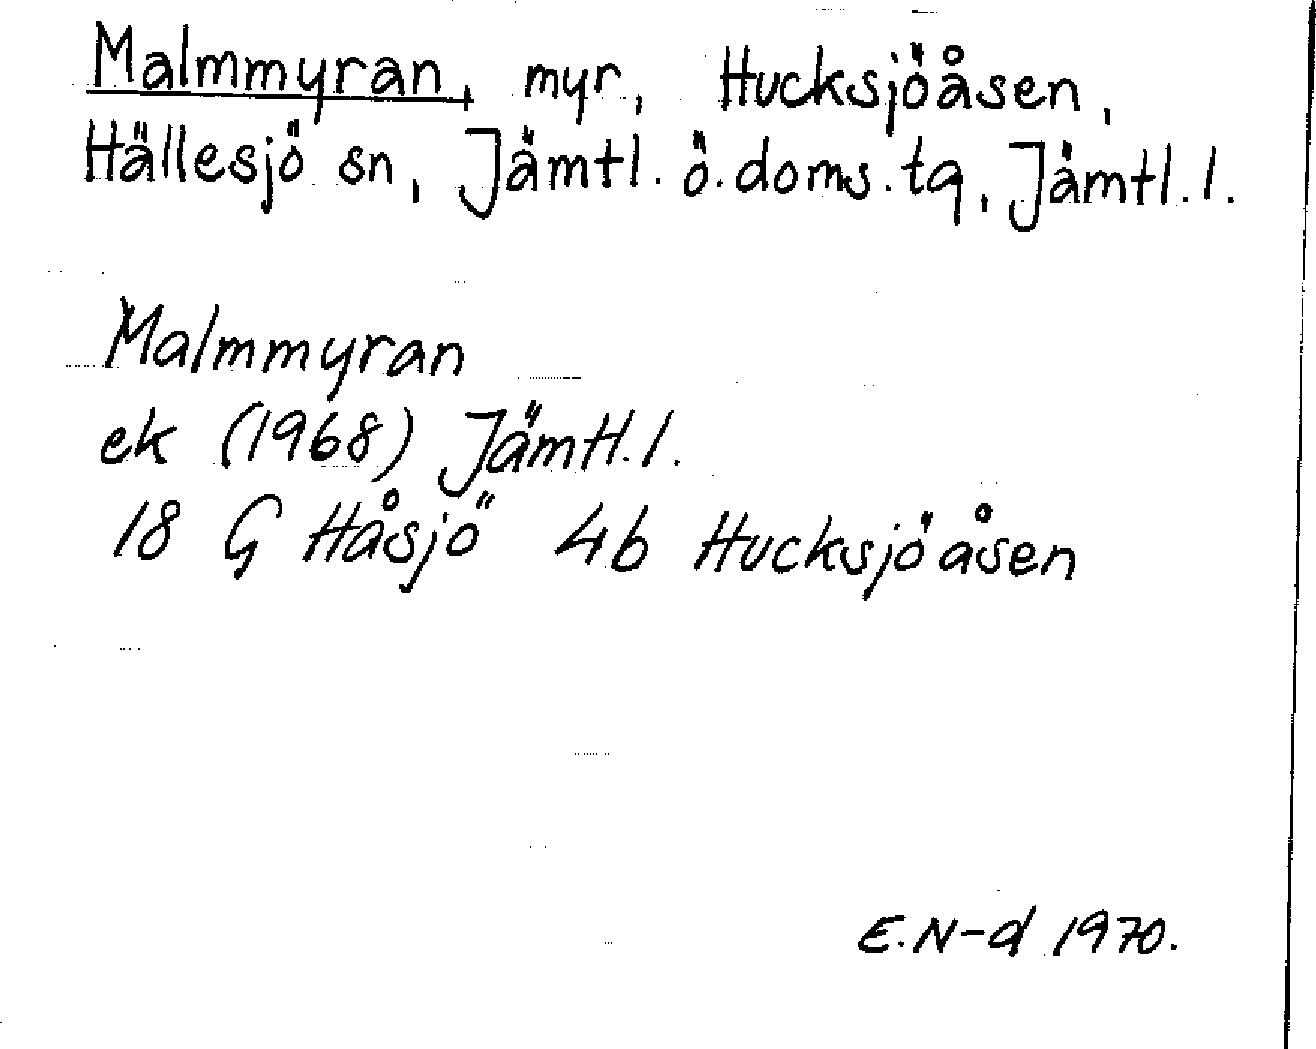 Malmmyran, myr, Hucksjöåsen,
Hällesjö sn, Jämtl. ö. doms. tg, Jämtl. l.
Malmmyran
ek (1968) Jämtl. l.
18 G Håsjö 4b Hucksjöåsen
E. N-d 1970.